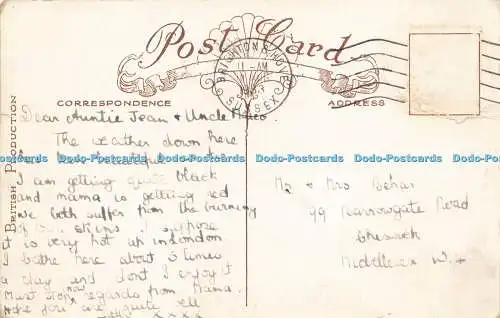 Post Card
BRIGHTON & HOVE
11-AM
SUSSEX
CORRESPONDENCE
ADDRESS
BRITISH PRODUCTION
Dear Auntie Jean & Uncle
The weather down here
has been beautiful
I am getting quite black
and mama is getting red
we both suffer from the burning
of our skins I suppose
it is very hot up in London
I bathe here about 3 times
a day and dont I enjoy it
Must stop now regards from Mama.
Hope you are quite
Mr & Mrs Behar
99 Barrowgate Road
Chiswick
Middlesex W.4
Dodo-Postcards Dodo-Postcards Dodo-Postcards Dodo-Postcards Dodo-Postcards